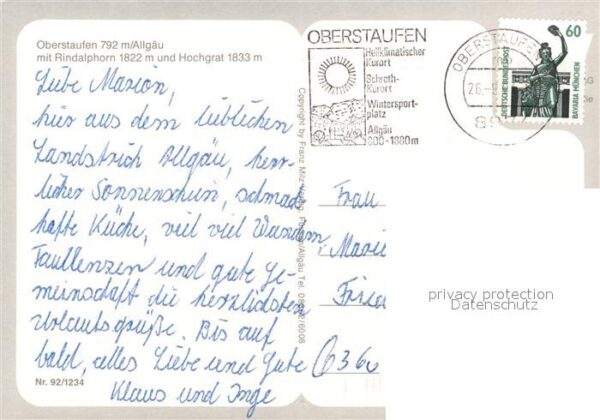 Oberstaufen 792 m/Allgäu
mit Rindalphorn 1822 m und Hochgrat 1833 m
Liebe Marion,
hier aus dem lieblichen
Landstrich Allgäu, herr-
licher Sonnenschein, schmack
hafte Küche, viel viel Wandern,
Faullenzen und gute Ge-
meinschaft die herzlichsten
Urlaubsgrüße. Bis auf
bald, alles Liebe und Gute
Klaus und Inge
Nr. 92/1234
Copyright by Franz Milz Verlag, Füssen/Allgäu Tel.
OBERSTAUFEN
Heilklimatischer
Kurort
Schroth-
Kurort
Wintersport-
platz
Allgäu
800-1800m
OBERSTAUFEN
26.
60
DEUTSCHE BUNDESPOST
BAVARIA MÜNCHEN
Frau
Mario
Fried
6360
privacy protection
Datenschutz